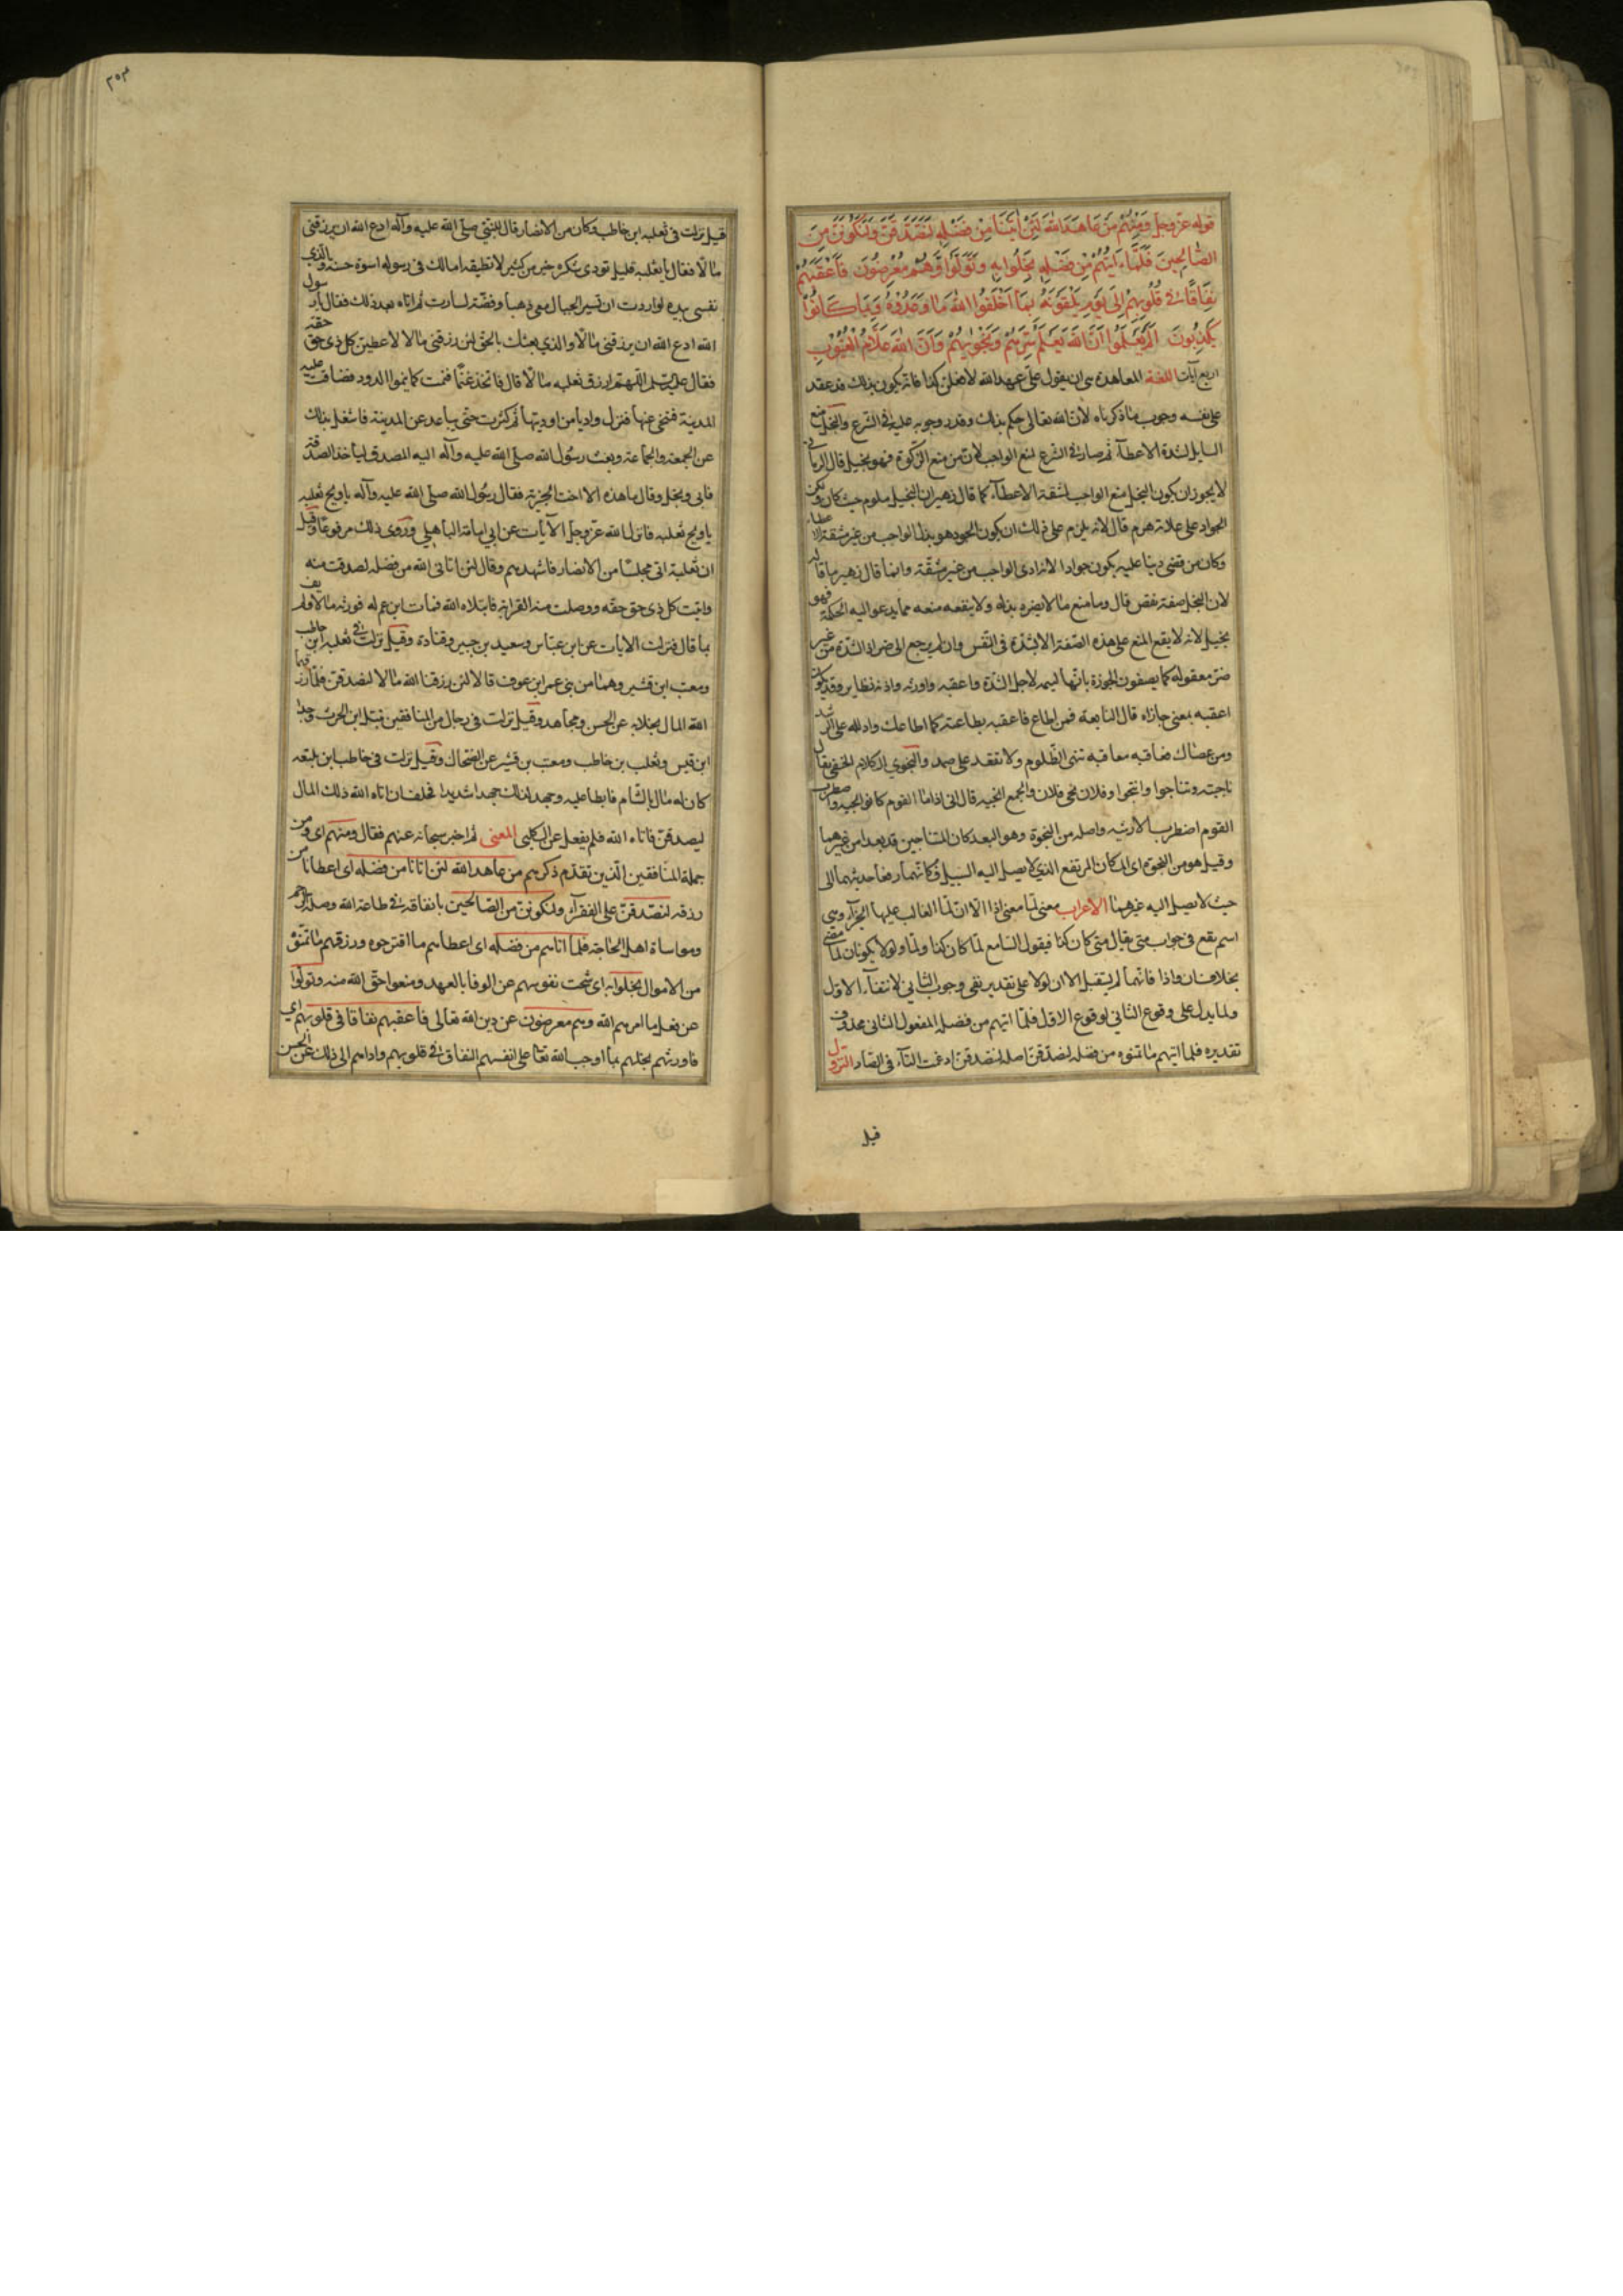 قوله عز وجل وَمِنْهُمْ مَنْ عَاهَدَ اللهَ لَئِنْ آتَيْنَا مِنْ فَضْلِهِ لَنَصَّدَّقَنَّ وَلَنَكُونَنَّ مِنَ
الصَّالِحِينَ فَلَمَّا آتَيٰهُمْ مِنْ فَضْلِهِ بَخِلُوا بِهِ وَتَوَلَّوْا وَهُمْ مُعْرِضُونَ فَأَعْقَبَهُمْ
نِفَاقًا فِي قُلُوبِهِمْ إِلَى يَوْمِ يَلْقَوْنَهُ بِمَا أَخْلَفُوا اللهَ مَا وَعَدُوهُ وَبِمَا كَانُوا
يَكْذِبُونَ أَلَمْ يَعْلَمُوا أَنَّ اللهَ يَعْلَمُ سِرَّهُمْ وَنَجْوٰيهُمْ وَأَنَّ اللهَ عَلَّامُ الْغُيُوبِ
اربع آيات اللغة المعاهدة هى ان يقول علىّ عهد الله لافعلن كذا فانه يكون بذلك قد عقد
على نفسه وجوب ما ذكرناه لان الله تعالى حكم بذلك وقدر وجوبه عليه فى الشرع والبخل منع
السايل لشدة الاعطآء ثم صار فى الشرع لمنع الواجب لان من منع الزكوة فهو بخيل قال الرمانى
لا يجوز ان يكون البخل منع الواجب لمشقة الاعطآء كما قال زهير ان البخيل ملوم حيث كان ولكن
الجواد على علاته هرم قال لانه يلزم على ذلك ان يكون الجود هو بذل الواجب من غير مشقة الاعطاء
وكان من قضى دينا عليه يكون جوادا لانه ادى الواجب من غير مشقة وانما قال زهير ما قاله
لان البخل صفة نقص قال وما منع ما لا يضره بذله ولا ينفعه منعه مما يدعو اليه الحكمة فهو
بخيل لانه لا يقع المنع على هذه الصفة الا لشدة فى النفس وان لم يرجع الى ضر اذ الشدة من غير
ضر معقوله كما يصفون الجوزة بانها ليمه لاجل الشدة واعقبه واورثه واداه نظاير وقد يكون
اعقبه بمعنى جازاه قال النابغة فمن اطاع فاعقبه بطاعته كما اطاعك وادلله على الرشد
ومن عصاك فعاقبه معاقبه تنهى الظلوم ولا تقعد على ضمد والنجوى الكلام الخفى يقال
ناجيته وتناجوا وانتجوا وفلان نجى فلان والجمع انجيه قال انى اذا ما القوم كانوا انجيه واضطرب
القوم اضطراب الارشيه واصله من النجوة وهو البعد كان المتناجيين قد بعدا من غيرهما
وقيل هو من النجوة اى المكان المرتفع الذى لا يصل اليه السيل فكانهما رفعا حديثهما الى
حيث لا يصل اليه غيرهما الاعراب معنى لما معنى اذا الا ان لما الغالب عليها الجزآء وهى
اسم يقع فى جواب متى يقال متى كان كذا فيقول السامع لما كان كذا ولما ولو لا يكونان لما مضى
بخلاف ان واذا فانهما لم يستقبل الا ان لو لا على تقدير نفى وجوب الثانى لانتفآء الاول
ولما يدل على وقوع الثانى لوقوع الاول فلما اتيهم من فضله المفعول الثانى محذوف
تقديره فلما اتيهم ما تمنوه من فضله لنصدقن اصله لنتصدقن ادغمت التآء فى الصاد النزول
قيل
٣٥٣
قيل نزلت فى ثعلبه ابن حاطب وكان من الانصار قال للنبى صلى الله عليه وآله ادع الله ان يرزقنى
مالا فقال يا ثعلبه قليل تودى شكره خير من كثير لا تطيقه اما لك فى رسوله اسوة حسنه والذى
نفسى بيده لو اردت ان تسير الجبال معى ذهبا وفضة لسارت ثم اتاه بعد ذلك فقال يا رسول
الله ادع الله ان يرزقنى مالا والذى بعثك بالحق لئن رزقنى مالا لاعطين كل ذى حق حقه
فقال عليه السلم اللهم ارزق ثعلبه مالا قال فاتخذ غنما فنمت كما ينموا الدود فضاقت عليه
المدينة فتنحى عنها فنزل واديا من اوديتها ثم كثرت حتى تباعد عن المدينة فاشتغل بذلك
عن الجمعة والجماعة وبعث رسول الله صلى الله عليه وآله اليه المصدق لياخذ الصدقة
فابى وبخل وقال ما هذه الا اخت الجزية فقال رسول الله صلى الله عليه وآله يا ويح ثعلبه
يا ويح ثعلبه فانزل الله عز وجل الآيات عن ابى امامة الباهلى وروى ذلك مرفوعا وقيل
ان ثعلبة اتى مجلسا من الانصار فاشهدهم وقال لئن اتانى الله من فضله لصدقت منه
واتيت كل ذى حق حقه ووصلت منه القرابة فابتلاه الله فمات ابن عم له فورثه مالا ولم يف
بما قال فنزلت الايات عن ابن عباس وسعيد بن جبير وقتادة وقيل نزلت فى ثعلبه ابن حاطب
ومعتب ابن قشير وهما من بنى عمر ابن عوف قالا لئن رزقنا الله مالا لنصدقن فلما رزقهما
الله المال بخلا به عن الحسن ومجاهد وقيل نزلت فى رجال من المنافقين نبتل ابن الحرث وجد
ابن قيس وثعلب بن حاطب ومعتب بن قشير عن الضحاك وقيل نزلت فى حاطب ابن بلتعه
كان له مال بالشام فابطا عليه وجهد لذلك جهدا شديدا فحلف لئن اتاه الله ذلك المال
ليصدقن فاتاه الله فلم يفعل عن الكلبى المعنى ثم اخبر سبحانه عنهم فقال ومنهم اى ومن
جملة المنافقين الذين تقدم ذكرهم من عاهد الله لئن اتانا من فضله اى اعطانا من
رزقه لنصدقن على الفقرآء ولنكونن من الصالحين بانفاقه فى طاعة الله وصلة الرحم
ومواساة اهل الحاجة فلما اتاهم من فضله اى اعطاهم ما اقترحوه ورزقهم ما تمنوه
من الاموال بخلوا به اى شحت نفوسهم عن الوفا بالعهد ومنعوا حق الله منه وتولوا
عن فعل ما امرهم الله وهم معرضون عن دين الله تعالى فاعقبهم نفاقا فى قلوبهم اى
فاورثهم بخلهم بما اوجب الله تعا على انفسهم النفاق فى قلوبهم واداهم الى ذلك عن الحسن